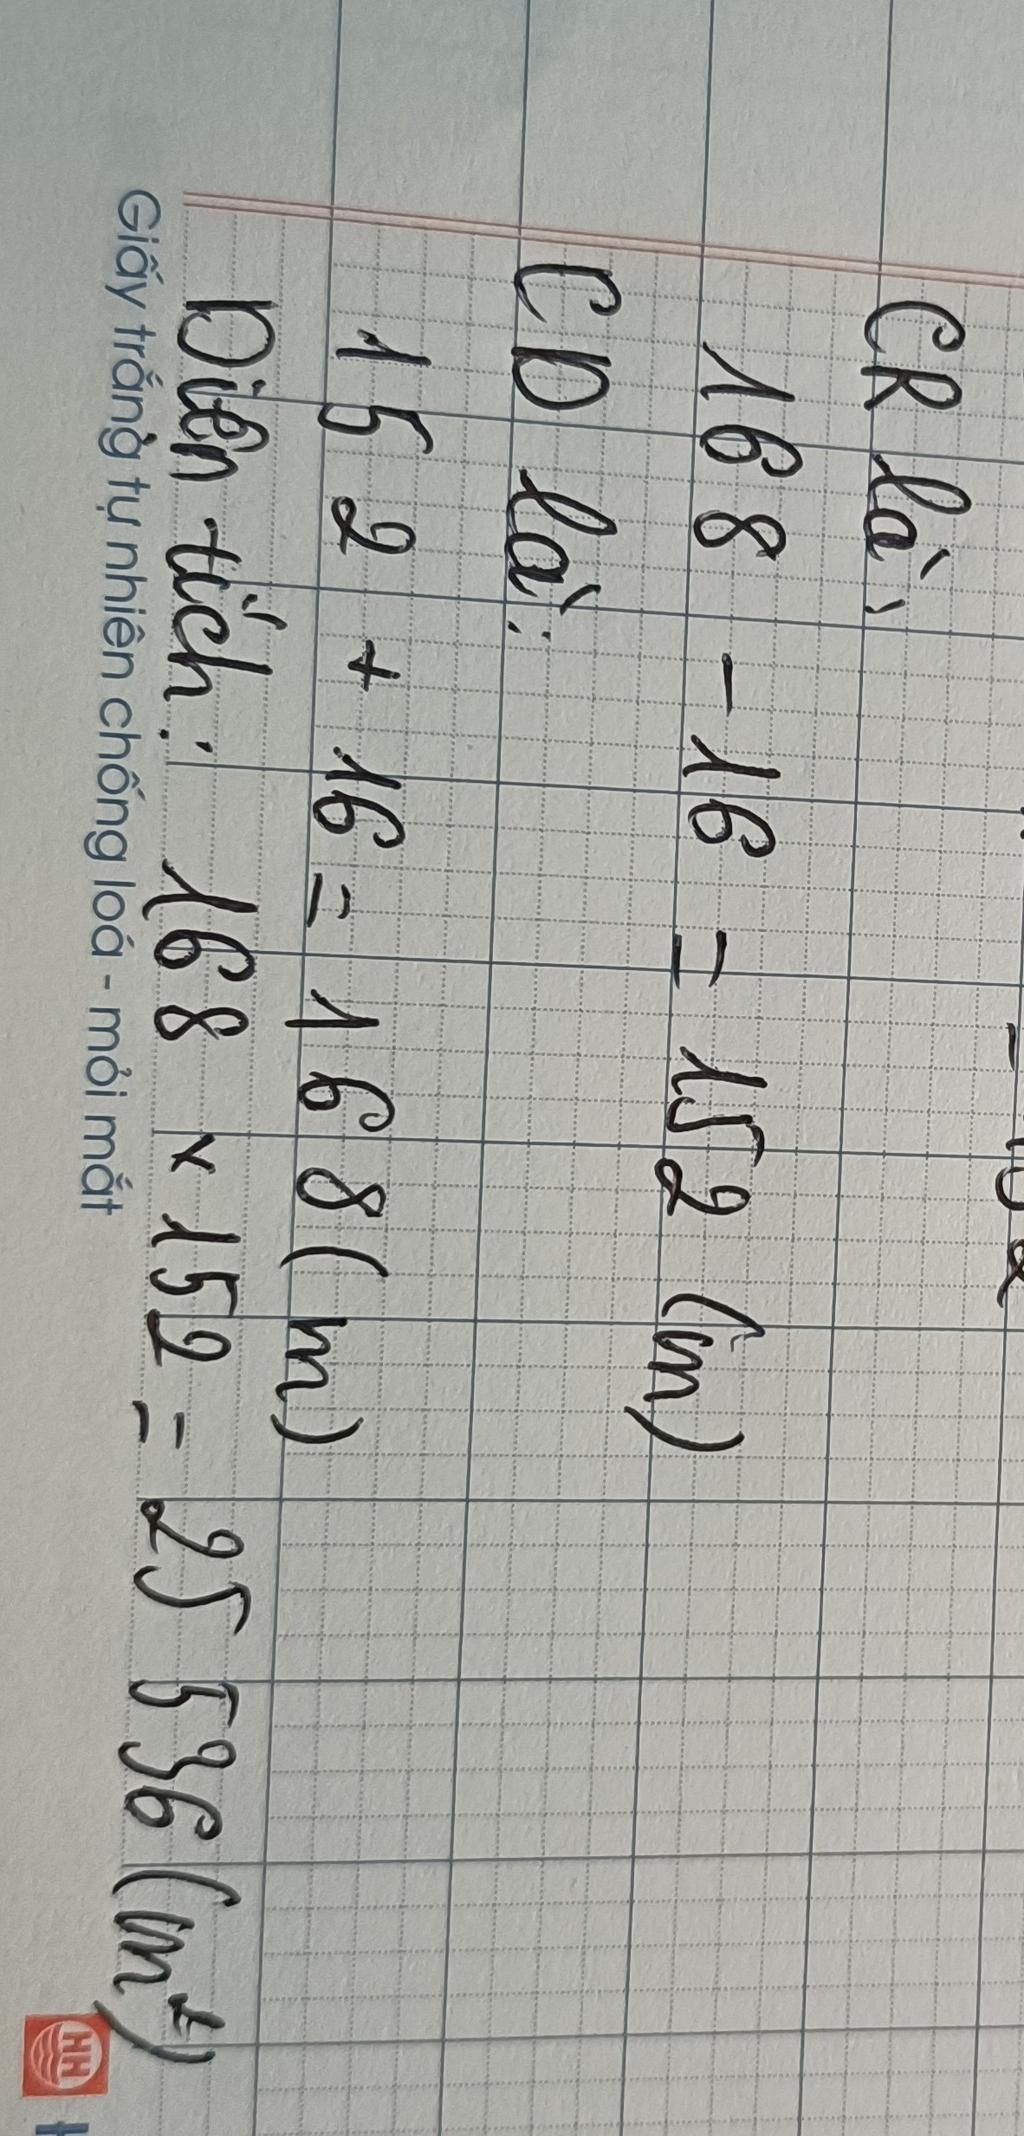 CR là:
168 - 16 = 152 (m)
CD là:
152 + 16 = 168 (m)
Diện tích: 168 x 152 = 25 536 (m²)
Giấy trắng tự nhiên chống loá - mỏi mắt
HH